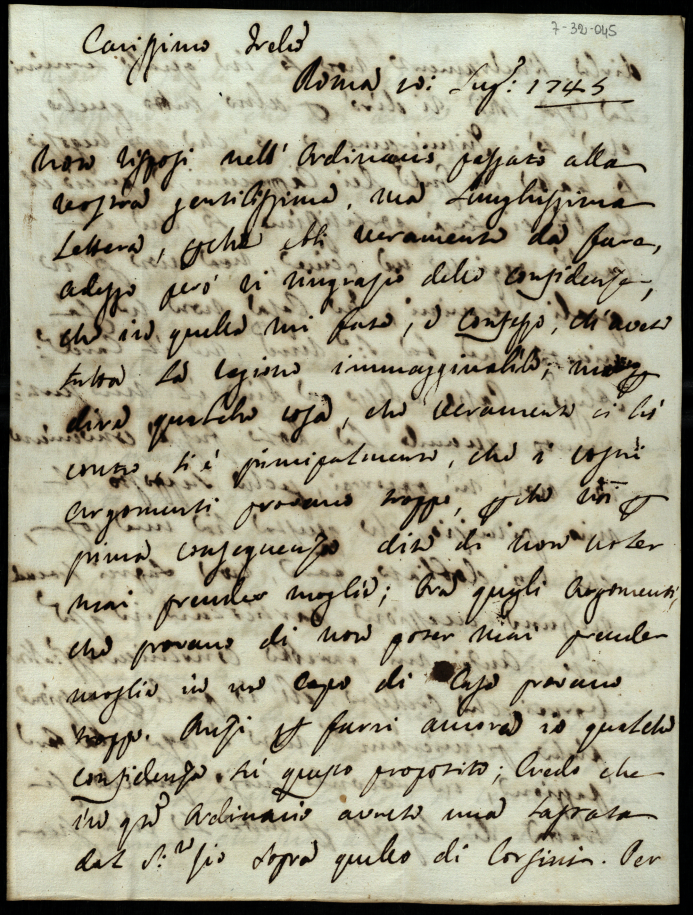 7-32-045
Carissimo Frelo
Roma 10: Lug.o: 1745
Non risposi nell' Ordinario passato alla
vostra gentilissima, ma lunghissima
Lettera, pche ebbi veramente da fare,
adesso però vi ringrazio della confidenza,
che in quella mi fate, e confesso, ch'avete
tutta la ragione immaginabile; ma p
dire qualche cosa, che veramente ci hò
contro, si è principalmente, che i vostri
argomenti provano troppo, pche voi p
prima conseguenza dite di non voler
mai prender moglie; Ora quegli Argomenti,
che provano di non poter mai prender
moglie in un capo di Casa provano
troppo. Anzi p farvi ancora io qualche
confidenza sù questo proposito; Credo che
in qto Ordinario avrete una
dal S.r Zio sopra quello di Corsini. Per